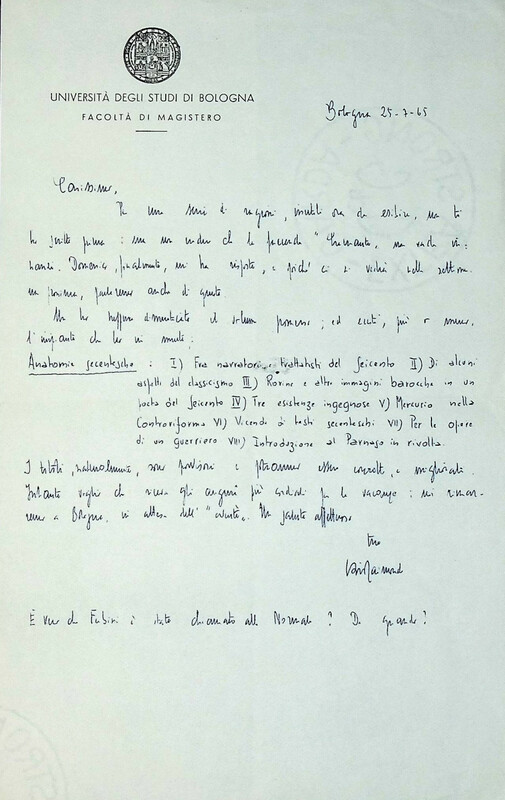 UNIVERSITÀ DEGLI STUDI DI BOLOGNA
FACOLTÀ DI MAGISTERO
Bologna 25-7-65
Carissimo,
Per una serie di ragioni, inutili ora da esibire, non ti
ho scritto prima: ma non credere che la faccenda "
Domenico, finalmente, mi ha risposto, e poiché ci si vedrà nella settima-
na prossima, parleremo anche di questo.
Non ho neppure dimenticato il volume promesso; ed eccoti, più o meno,
l'impianto che ho in mente:
Anatomie secentesche: I) Fra narratori e trattatisti del Seicento II) Di alcuni
aspetti del classicismo III) Rovine e altre immagini barocche in un
poeta del Seicento IV) Tre esistenze ingegnose V) Mercurio nella
Controriforma VI) Vicende di testi secenteschi VII) Per le opere
di un guerriero VIII) Introduzione al Parnaso in rivolta.
I titoli, naturalmente, sono provvisori e potranno essere corretti, e migliorati.
Intanto voglio che riceva gli auguri più cordiali per le vacanze: noi rimar-
remo a Bologna, in attesa dell'"evento". Un saluto affettuoso
tuo
Raimondi
È vero che Fubini è stato chiamato alla Normale? Da quando?